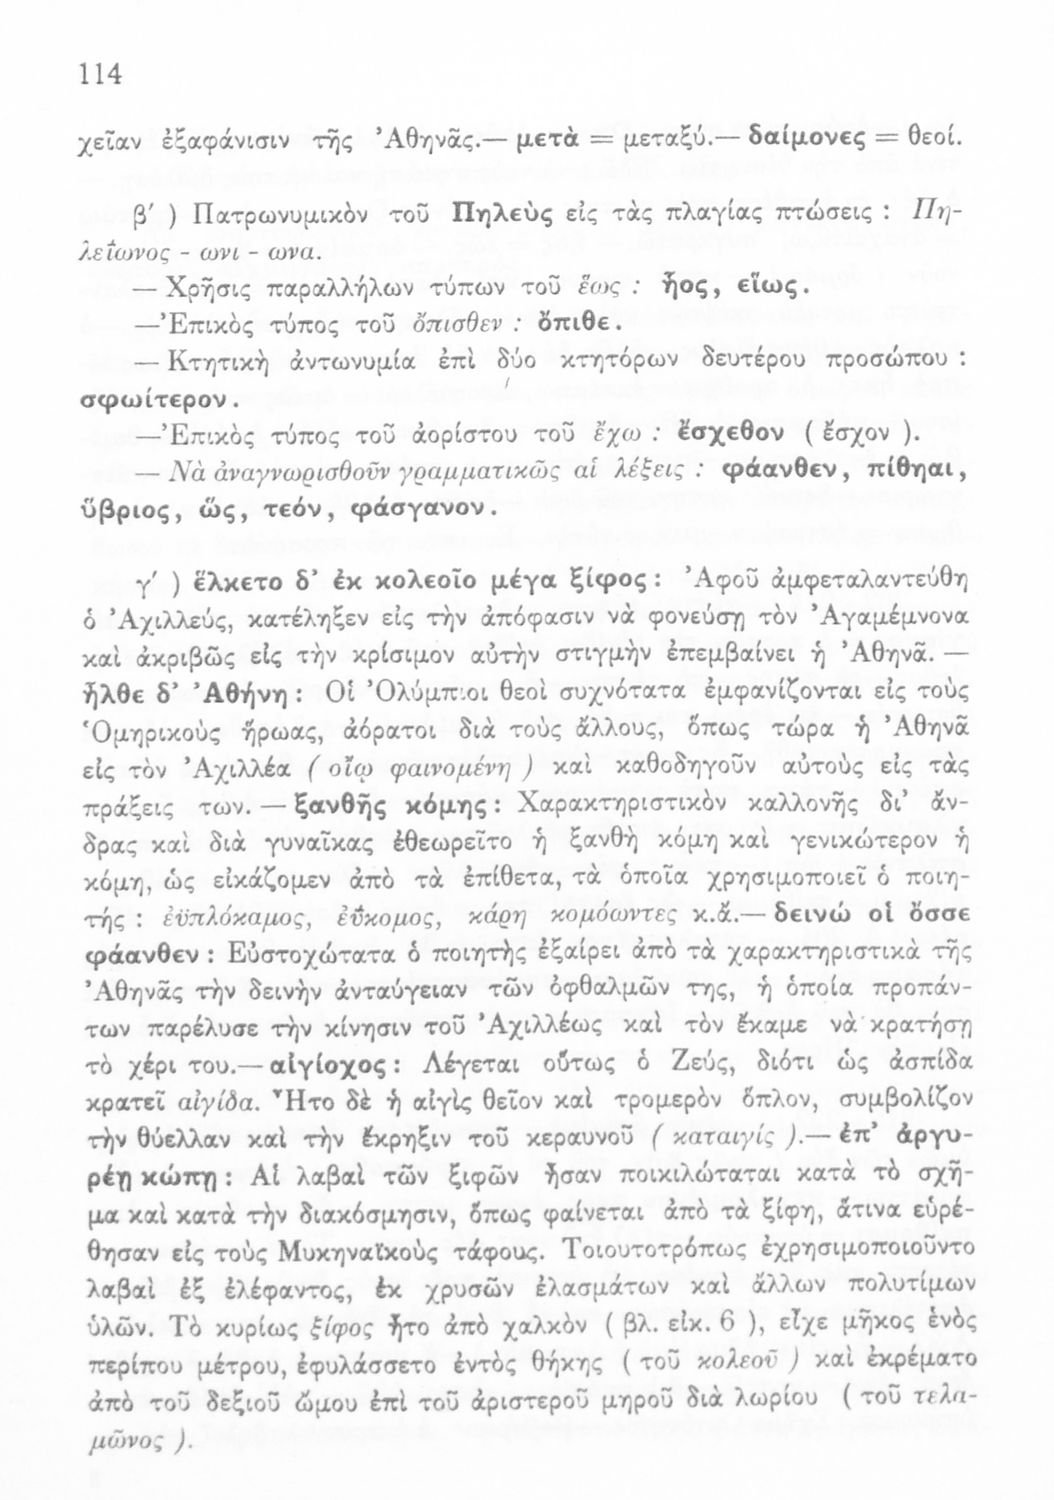 114
χεῖαν ἐξαφάνισιν τῆς Ἀθηνᾶς.— μετὰ = μεταξύ.— δαίμονες = θεοί.
β′ ) Πατρωνυμικὸν τοῦ Πηλεὺς εἰς τὰς πλαγίας πτώσεις : Πη-
λεΐωνος - ωνι - ωνα.
— Χρῆσις παραλλήλων τύπων τοῦ ἕως : ἧος, εἵως.
—Ἐπικὸς τύπος τοῦ ὄπισθεν : ὄπιθε.
— Κτητικὴ ἀντωνυμία ἐπὶ δύο κτητόρων δευτέρου προσώπου :
σφωίτερον.
—Ἐπικὸς τύπος τοῦ ἀορίστου τοῦ ἔχω : ἔσχεθον ( ἔσχον ).
— Νὰ ἀναγνωρισθοῦν γραμματικῶς αἱ λέξεις : φάανθεν, πίθηαι,
ὕβριος, ὥς, τεόν, φάσγανον.
γ′ ) ἕλκετο δ’ ἐκ κολεοῖο μέγα ξίφος : Ἀφοῦ ἀμφεταλαντεύθη
ὁ Ἀχιλλεύς, κατέληξεν εἰς τὴν ἀπόφασιν νὰ φονεύσῃ τὸν Ἀγαμέμνονα
καὶ ἀκριβῶς εἰς τὴν κρίσιμον αὐτὴν στιγμὴν ἐπεμβαίνει ἡ Ἀθηνᾶ. —
ἦλθε δ’ Ἀθήνη : Οἱ Ὀλύμπιοι θεοὶ συχνότατα ἐμφανίζονται εἰς τοὺς
Ὁμηρικοὺς ἥρωας, ἀόρατοι διὰ τοὺς ἄλλους, ὅπως τώρα ἡ Ἀθηνᾶ
εἰς τὸν Ἀχιλλέα ( οἴῳ φαινομένη ) καὶ καθοδηγοῦν αὐτοὺς εἰς τὰς
πράξεις των. — ξανθῆς κόμης : Χαρακτηριστικὸν καλλονῆς δι’ ἄν-
δρας καὶ διὰ γυναῖκας ἐθεωρεῖτο ἡ ξανθὴ κόμη καὶ γενικώτερον ἡ
κόμη, ὡς εἰκάζομεν ἀπὸ τὰ ἐπίθετα, τὰ ὁποῖα χρησιμοποιεῖ ὁ ποιη-
τής : ἐϋπλόκαμος, ἐΰκομος, κάρη κομόωντες κ.ἄ.— δεινὼ οἱ ὄσσε
φάανθεν : Εὐστοχώτατα ὁ ποιητὴς ἐξαίρει ἀπὸ τὰ χαρακτηριστικὰ τῆς
Ἀθηνᾶς τὴν δεινὴν ἀνταύγειαν τῶν ὀφθαλμῶν της, ἡ ὁποία προπάν-
των παρέλυσε τὴν κίνησιν τοῦ Ἀχιλλέως καὶ τὸν ἔκαμε νὰ κρατήσῃ
τὸ χέρι του.— αἰγίοχος : Λέγεται οὕτως ὁ Ζεύς, διότι ὡς ἀσπίδα
κρατεῖ αἰγίδα. Ἦτο δὲ ἡ αἰγὶς θεῖον καὶ τρομερὸν ὅπλον, συμβολίζον
τὴν θύελλαν καὶ τὴν ἔκρηξιν τοῦ κεραυνοῦ ( καταιγίς ).— ἐπ’ ἀργυ-
ρέῃ κώπῃ : Αἱ λαβαὶ τῶν ξιφῶν ἦσαν ποικιλώταται κατὰ τὸ σχῆ-
μα καὶ κατὰ τὴν διακόσμησιν, ὅπως φαίνεται ἀπὸ τὰ ξίφη, ἅτινα εὑρέ-
θησαν εἰς τοὺς Μυκηναϊκοὺς τάφους. Τοιουτοτρόπως ἐχρησιμοποιοῦντο
λαβαὶ ἐξ ἐλέφαντος, ἐκ χρυσῶν ἐλασμάτων καὶ ἄλλων πολυτίμων
ὑλῶν. Τὸ κυρίως ξίφος ἦτο ἀπὸ χαλκὸν ( βλ. εἰκ. 6 ), εἶχε μῆκος ἑνὸς
περίπου μέτρου, ἐφυλάσσετο ἐντὸς θήκης ( τοῦ κολεοῦ ) καὶ ἐκρέματο
ἀπὸ τοῦ δεξιοῦ ὤμου ἐπὶ τοῦ ἀριστεροῦ μηροῦ διὰ λωρίου ( τοῦ τελα-
μῶνος ).